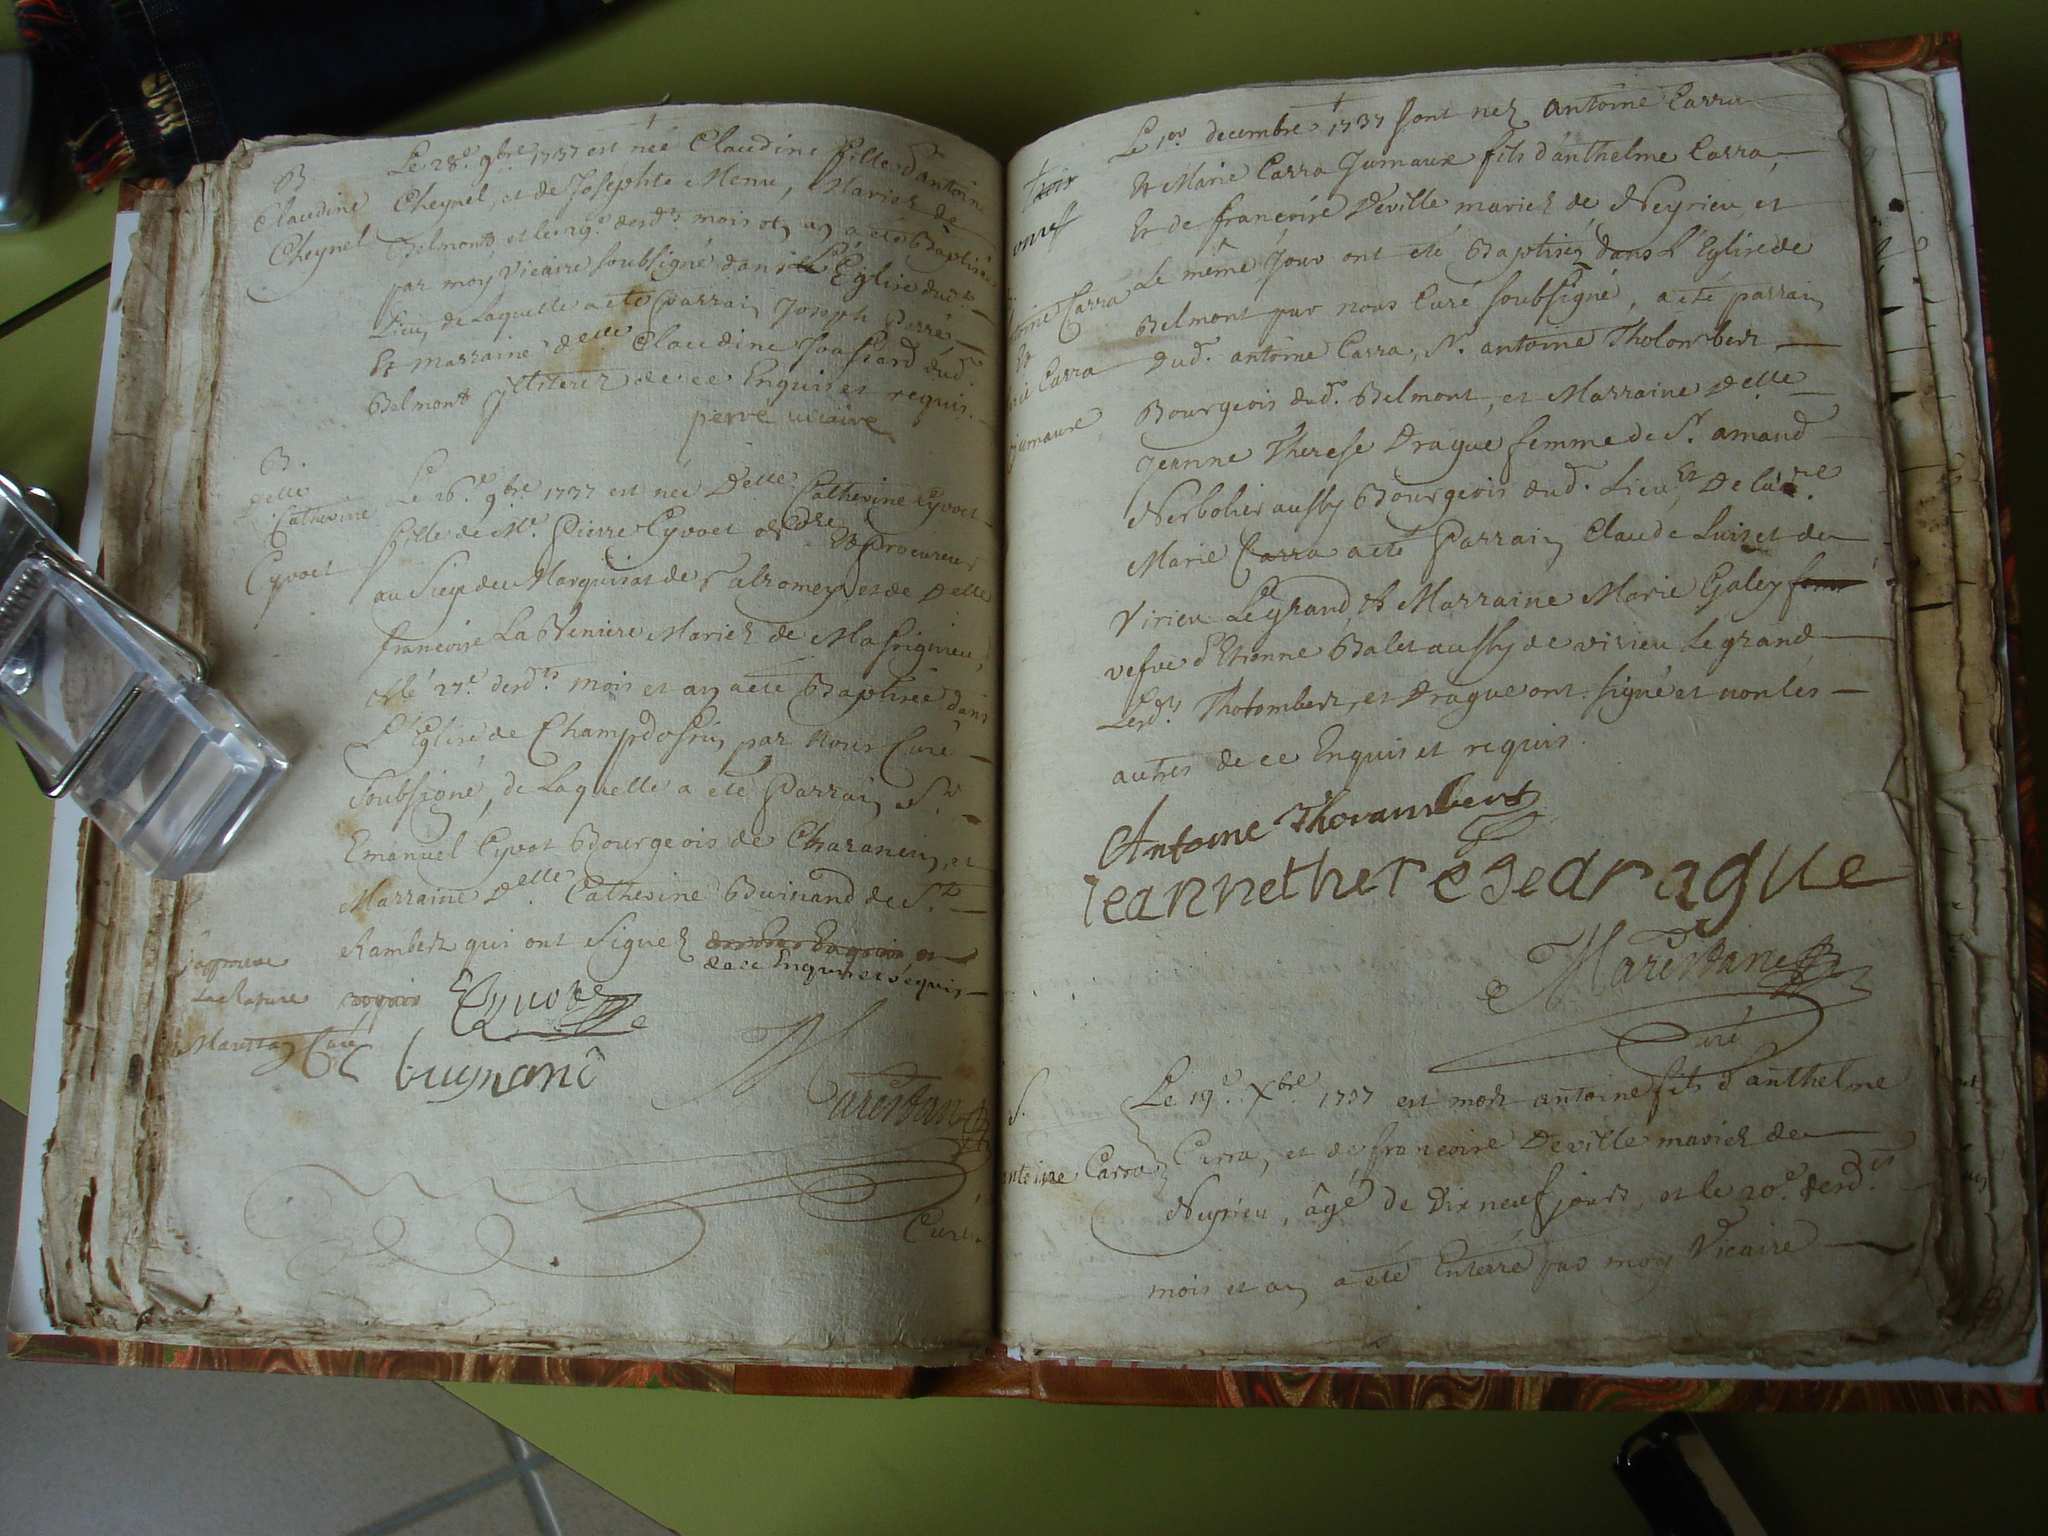 B
Claudine
Cheynel
Le 28e. 9bre 1737 est neé Claudine fille d'antoine
Cheynel, et de Josephte Menu, Mariez de
Belmont et le 29e. desd.ts mois et an a eté Baptisée
par moy Vicaire soubsigné dans L'Eglise dud.t
Lieu, de Laquelle a eté parrain Joseph Parré
Et marraine delle Claudine Joassard dud.t
Belmont, Illiterez de ce Enquis et requis.
perré vicaire
B.
delle
Catherine
Cyvoct
Le 26.e 9bre 1737 est neé Delle Catherine Cyvoct
fille de Me. Pierre Cyvoct Et Procureur
au Siege du Marquisat de Valromey et de Delle
francoise La Mariez de Massignieu,
et le 27.e desd.ts mois et an a eté Baptisée dans
L'Eglise de Champdossin par Nous Curé
Soubsigné, de Laquelle a eté Parrain Sr.
Emanuel Cyvot Bourgeois de Chazaney, et
Marraine Delle. Catherine Buinand de St.
Rambert qui ont Signez
de ce Enquis et requis
japprouve
La Rature
Marestan Curé
Cyvoct
buynand
Marestan
Curé.
trois
onneff
antoine Carra
Et
Marie Carra
Jumaux
Le 1er decembre 1737 sont nez antoine Carra
Et Marie Carra Jumaux fils d'anthelme Carra,
Et de francoise Deville mariez de Neyrieu, et
Le même Jour ont eté Baptisez dans L'Eglise de
Belmont par nous Curé soubsigné, a eté parrain
dud. antoine Carra, Sr. antoine Tholomber
Bourgeois dud. Belmont, et Marraine Delle
Jeanne Therese Drague femme de Sr. amand
Nerbolier aussy Bourgeois dud. Lieu, Et De ladte.
Marie Carra a eté Parrain Claude Luiset de
Virieu Legrand, Et Marraine Marie Galey
vefve d'Etienne Balet aussy de virieu Legrand
Lesd.ts Tholomber, et Drague ont signé et non les
autres de ce Enquis et requis.
Antoine Thorambert
ieannetheresedrague
Marestan
Curé
S.
antoine Carra
Le 19e. Xbre. 1737 est mort antoine fils d'anthelme
Carra, et de francoise Deville mariez de
Neyrieu, âgé de Dix neuf jours, et le 20e. desd.ts
mois et an a eté Enterré par moy Vicaire